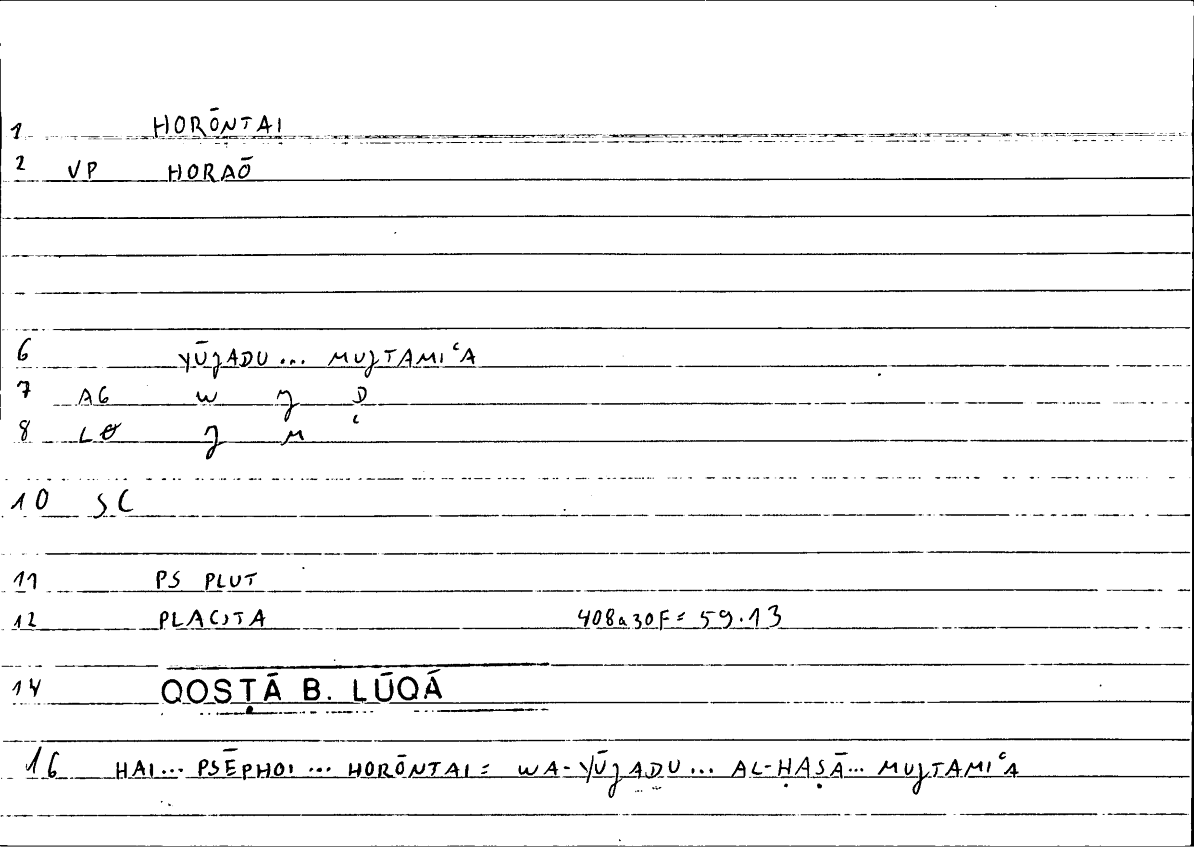 1 HORŌNTAI
2 VP HORAŌ
6 YŪJADU ... MUJTAMIʿA
7 AG W J D
8 LO J M ʿ
10 SC
11 PS PLUT
12 PLACITA 408a30F = 59.13
14 QOSṬĀ B. LŪQĀ
16 HAI... PSĒPHOI ... HORŌNTAI = WA-YŪJADU ... AL-ḤAṢĀ... MUJTAMIʿA